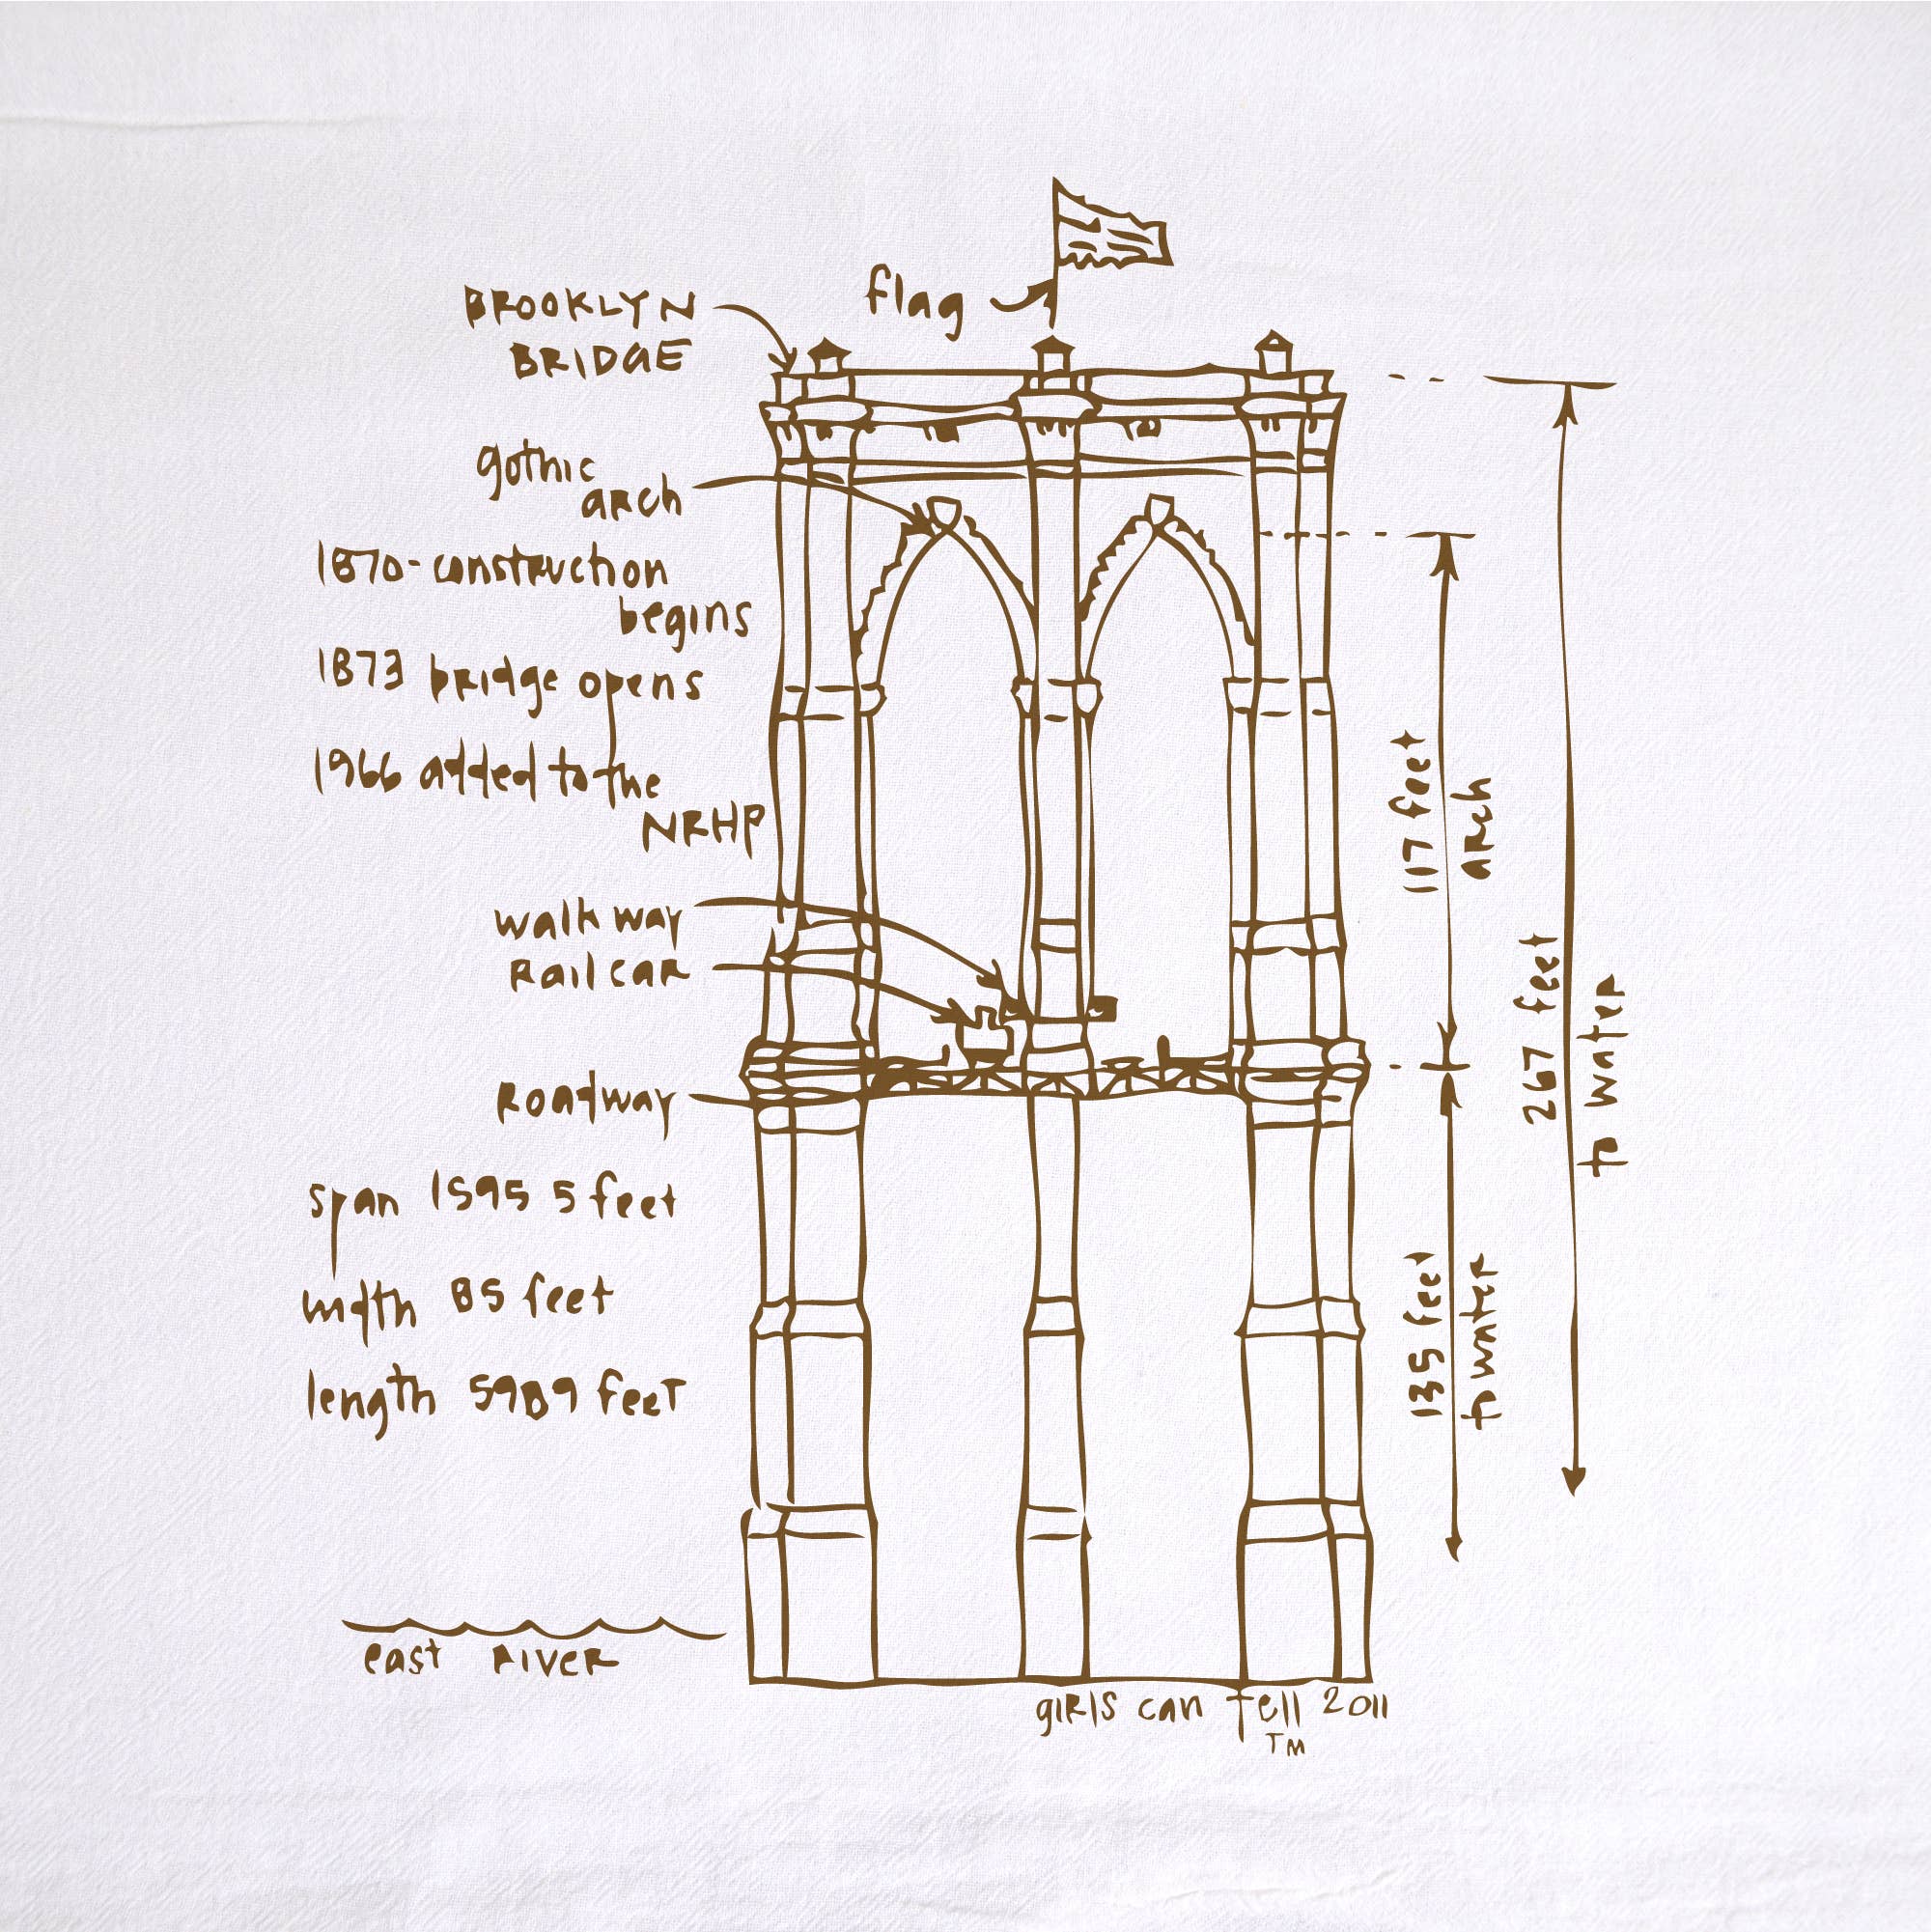 flag
BROOKLYN
BRIDGE
gothic
arch
1870-construction
begins
1873 bridge opens
1966 added to the
NRHP
walk way
Railcar
Roadway
span 1595 5 feet
width 85 feet
length 5989 feet
east River
117 feet
arch
267 feet
to water
135 feet
to water
girls can tell 2011
TM